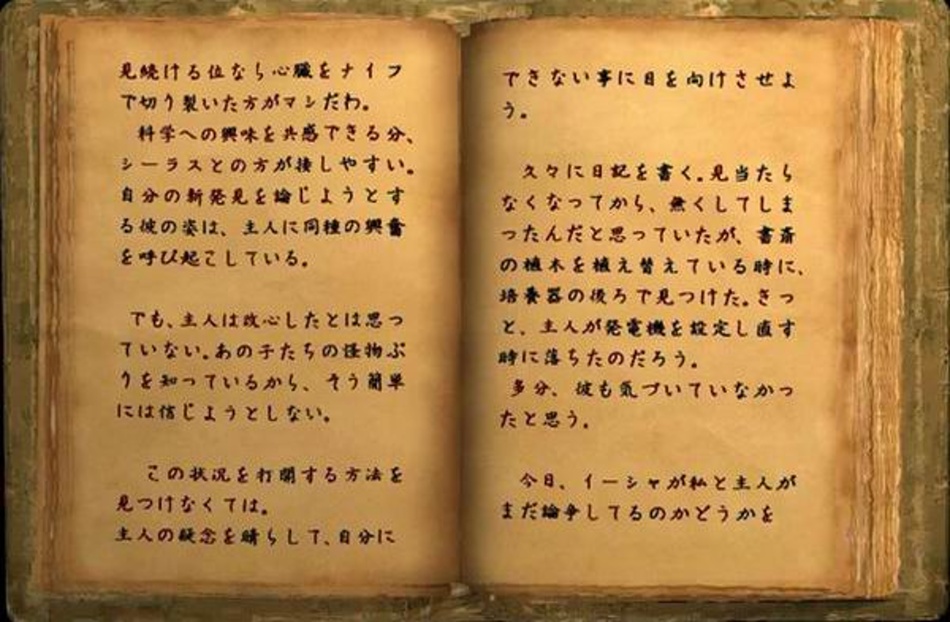 見続ける位なら心臓をナイフ
で切り裂いた方がマシだわ。
科学への興味を共感できる分、
シーラスとの方が接しやすい。
自分の新発見を論じようとす
る彼の姿は、主人に同種の興奮
を呼び起こしている。
でも、主人は改心したとは思っ
ていない。あの子たちの怪物ぶ
りを知っているから、そう簡単
には信じようとしない。
この状況を打開する方法を
見つけなくては。
主人の疑念を晴らして、自分に
できない事に目を向けさせよ
う。
久々に日記を書く。見当たら
なくなってから、無くしてしま
ったんだと思っていたが、書斎
の植木を植え替えている時に、
培養器の後ろで見つけた。きっ
と、主人が発電機を設定し直す
時に落ちたのだろう。
多分、彼も気づいていなかっ
たと思う。
今日、イーシャが私と主人が
まだ論争してるのかどうかを